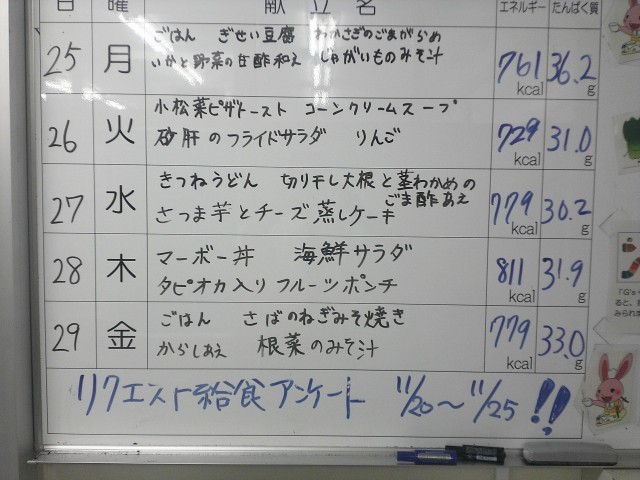 日 曜 献立名 エネルギー たんぱく質
25 月 ごはん ぎせい豆腐 わかさぎのごまがらめ 761 kcal 36.2 g
いかと野菜の甘酢和え じゃがいものみそ汁
26 火 小松菜ピザトースト コーンクリームスープ 729 kcal 31.0 g
砂肝のフライドサラダ りんご
27 水 きつねうどん 切り干し大根と茎わかめの 779 kcal 30.2 g
ごま酢あえ
さつま芋とチーズ蒸しケーキ
28 木 マーボー丼 海鮮サラダ 811 kcal 31.9 g
タピオカ入りフルーツポンチ
29 金 ごはん さばのねぎみそ焼き 779 kcal 33.0 g
からしあえ 根菜のみそ汁
リクエスト給食アンケート 11/20～11/25!!